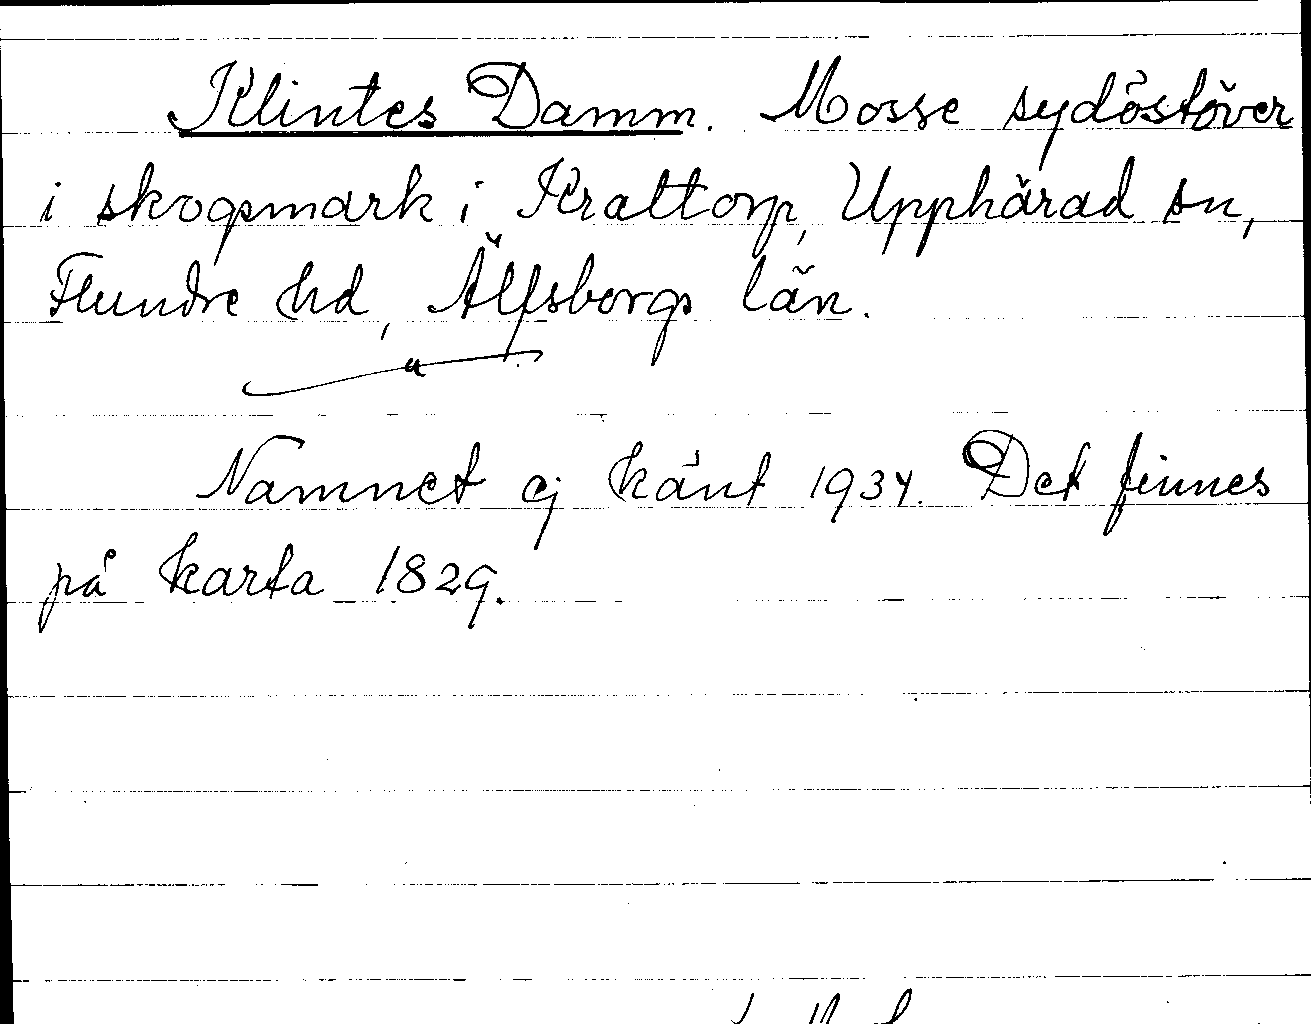 Klintes Damm. Mosse sydöstöver
i skogsmark i Krattorp, Upphärad sn,
Flundre hd, Älfsborgs län.
Namnet ej känt 1934. Det finnes
på karta 1829.